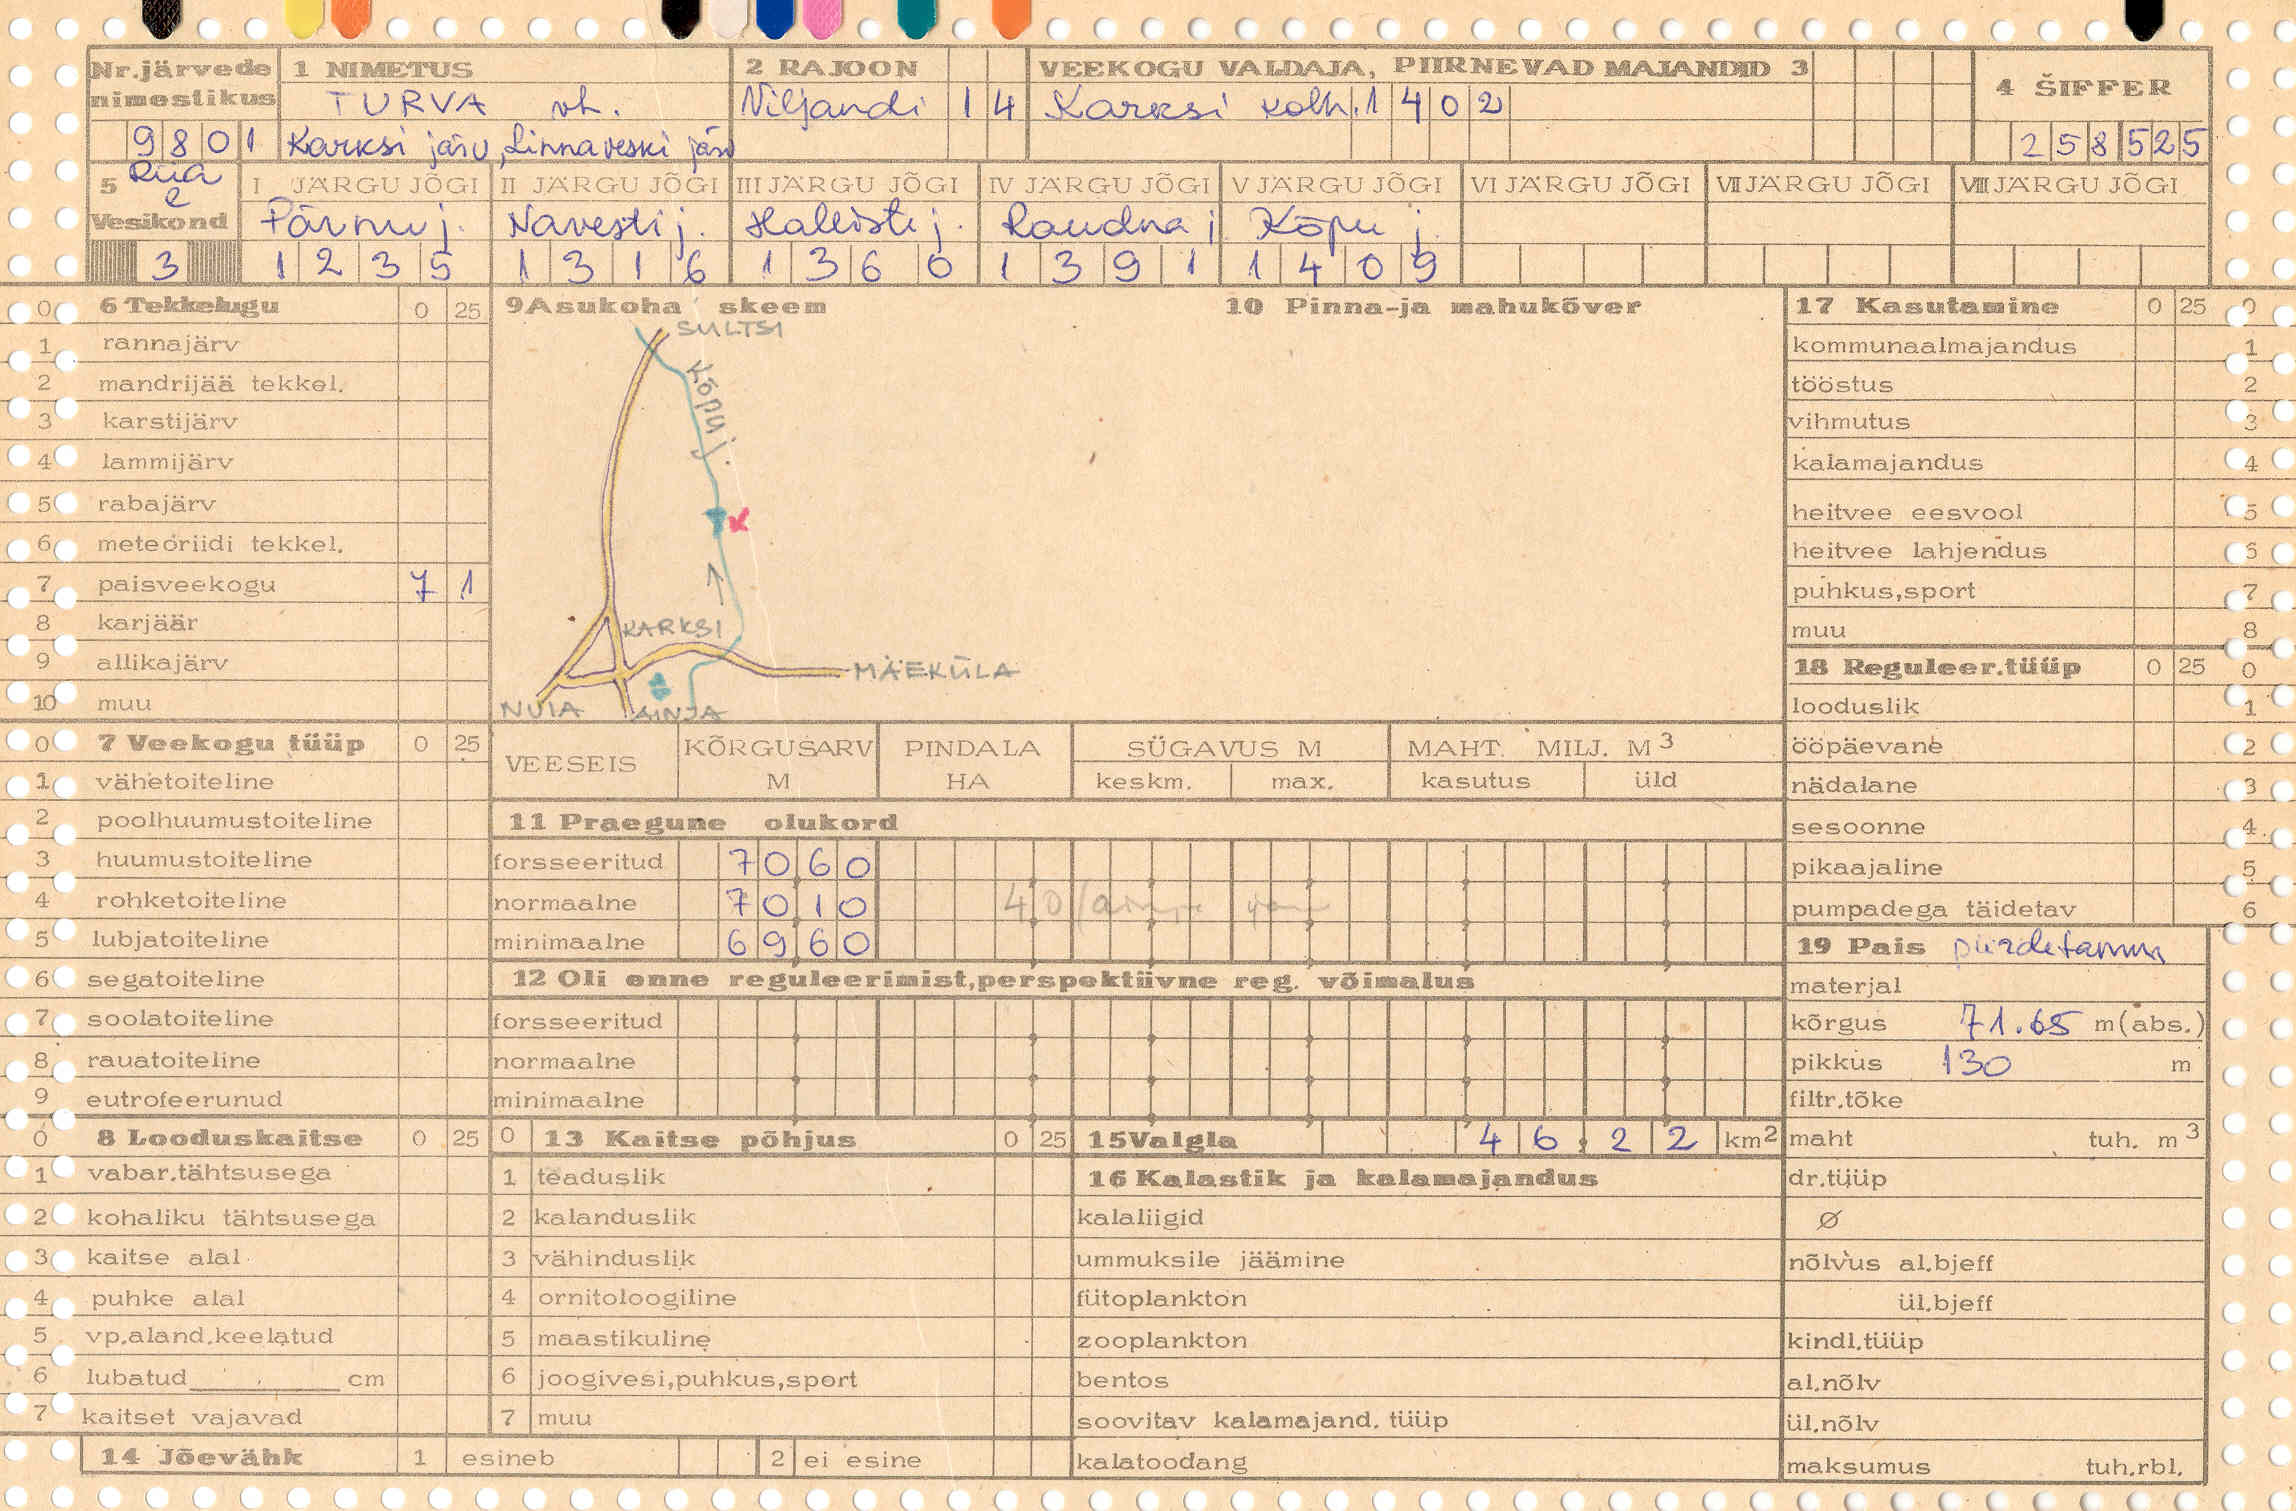 Nr.järvede nimestikus
9801
1 NIMETUS
TURVA vh.
Karksi järv, Linnaveski järv
2 RAJOON
Viljandi 14
VEEKOGU VALDAJA, PIIRNEVAD MAJANDID 3
Karksi kolh. 1402
4 ŠIFFER
258525
5 Riia
Vesikond
3
I JÄRGU JÕGI
Pärnu j.
1235
II JÄRGU JÕGI
Navesti j.
1316
III JÄRGU JÕGI
Halliste j.
1360
IV JÄRGU JÕGI
Raudna j
1391
V JÄRGU JÕGI
Kõpu j.
1409
VI JÄRGU JÕGI
VII JÄRGU JÕGI
VIII JÄRGU JÕGI
0 6 Tekkelugu 0 25
1 rannajärv
2 mandrijää tekkel.
3 karstijärv
4 lammijärv
5 rabajärv
6 meteoriidi tekkel.
7 paisveekogu 7 1
8 karjäär
9 allikajärv
10 muu
0 7 Veekogu tüüp 0 25
1 vähetoiteline
2 poolhuumustoiteline
3 huumustoiteline
4 rohketoiteline
5 lubjatoiteline
6 segatoiteline
7 soolatoiteline
8 rauatoiteline
9 eutrofeerunud
0 8 Looduskaitse 0 25
1 vabar.tähtsusega
2 kohaliku tähtsusega
3 kaitse alal
4 puhke alal
5 vp.aland.keelatud
6 lubatud cm
7 kaitset vajavad
14 Jõevähk 1 esineb 2 ei esine
9 Asukoha skeem
SULTSI
Kõpu j.
KARKSI
MÄEKÜLA
NUIA
AINJA
10 Pinna-ja mahukõver
VEESEIS
KÕRGUSARV M
PINDALA HA
SÜGAVUS M
keskm. max.
MAHT. MILJ. M3
kasutus üld
11 Praegune olukord
forsseeritud 7060
normaalne 7010 40
minimaalne 6960
12 Oli enne reguleerimist,perspektiivne reg. võimalus
forsseeritud
normaalne
minimaalne
0 13 Kaitse põhjus 0 25
1 teaduslik
2 kalanduslik
3 vähinduslik
4 ornitoloogiline
5 maastikuline
6 joogivesi,puhkus,sport
7 muu
15 Valgla 46,22 km2
16 Kalastik ja kalamajandus
kalaliigid
ummuksile jäämine
fütoplankton
zooplankton
bentos
soovitav kalamajand. tüüp
kalatoodang
17 Kasutamine 0 25 0
kommunaalmajandus 1
tööstus 2
vihmutus 3
kalamajandus 4
heitvee eesvool 5
heitvee lahjendus 6
puhkus,sport 7
muu 8
18 Reguleer.tüüp 0 25 0
looduslik 1
ööpäevane 2
nädalane 3
sesoonne 4
pikaajaline 5
pumpadega täidetav 6
19 Pais piirdetamm
materjal
kõrgus 71.65 m(abs.)
pikkus 130 m
filtr.tõke
maht tuh. m3
dr.tüüp
Ø
nõlvus al.bjeff
ül.bjeff
kindl.tüüp
al.nõlv
ül.nõlv
maksumus tuh.rbl.